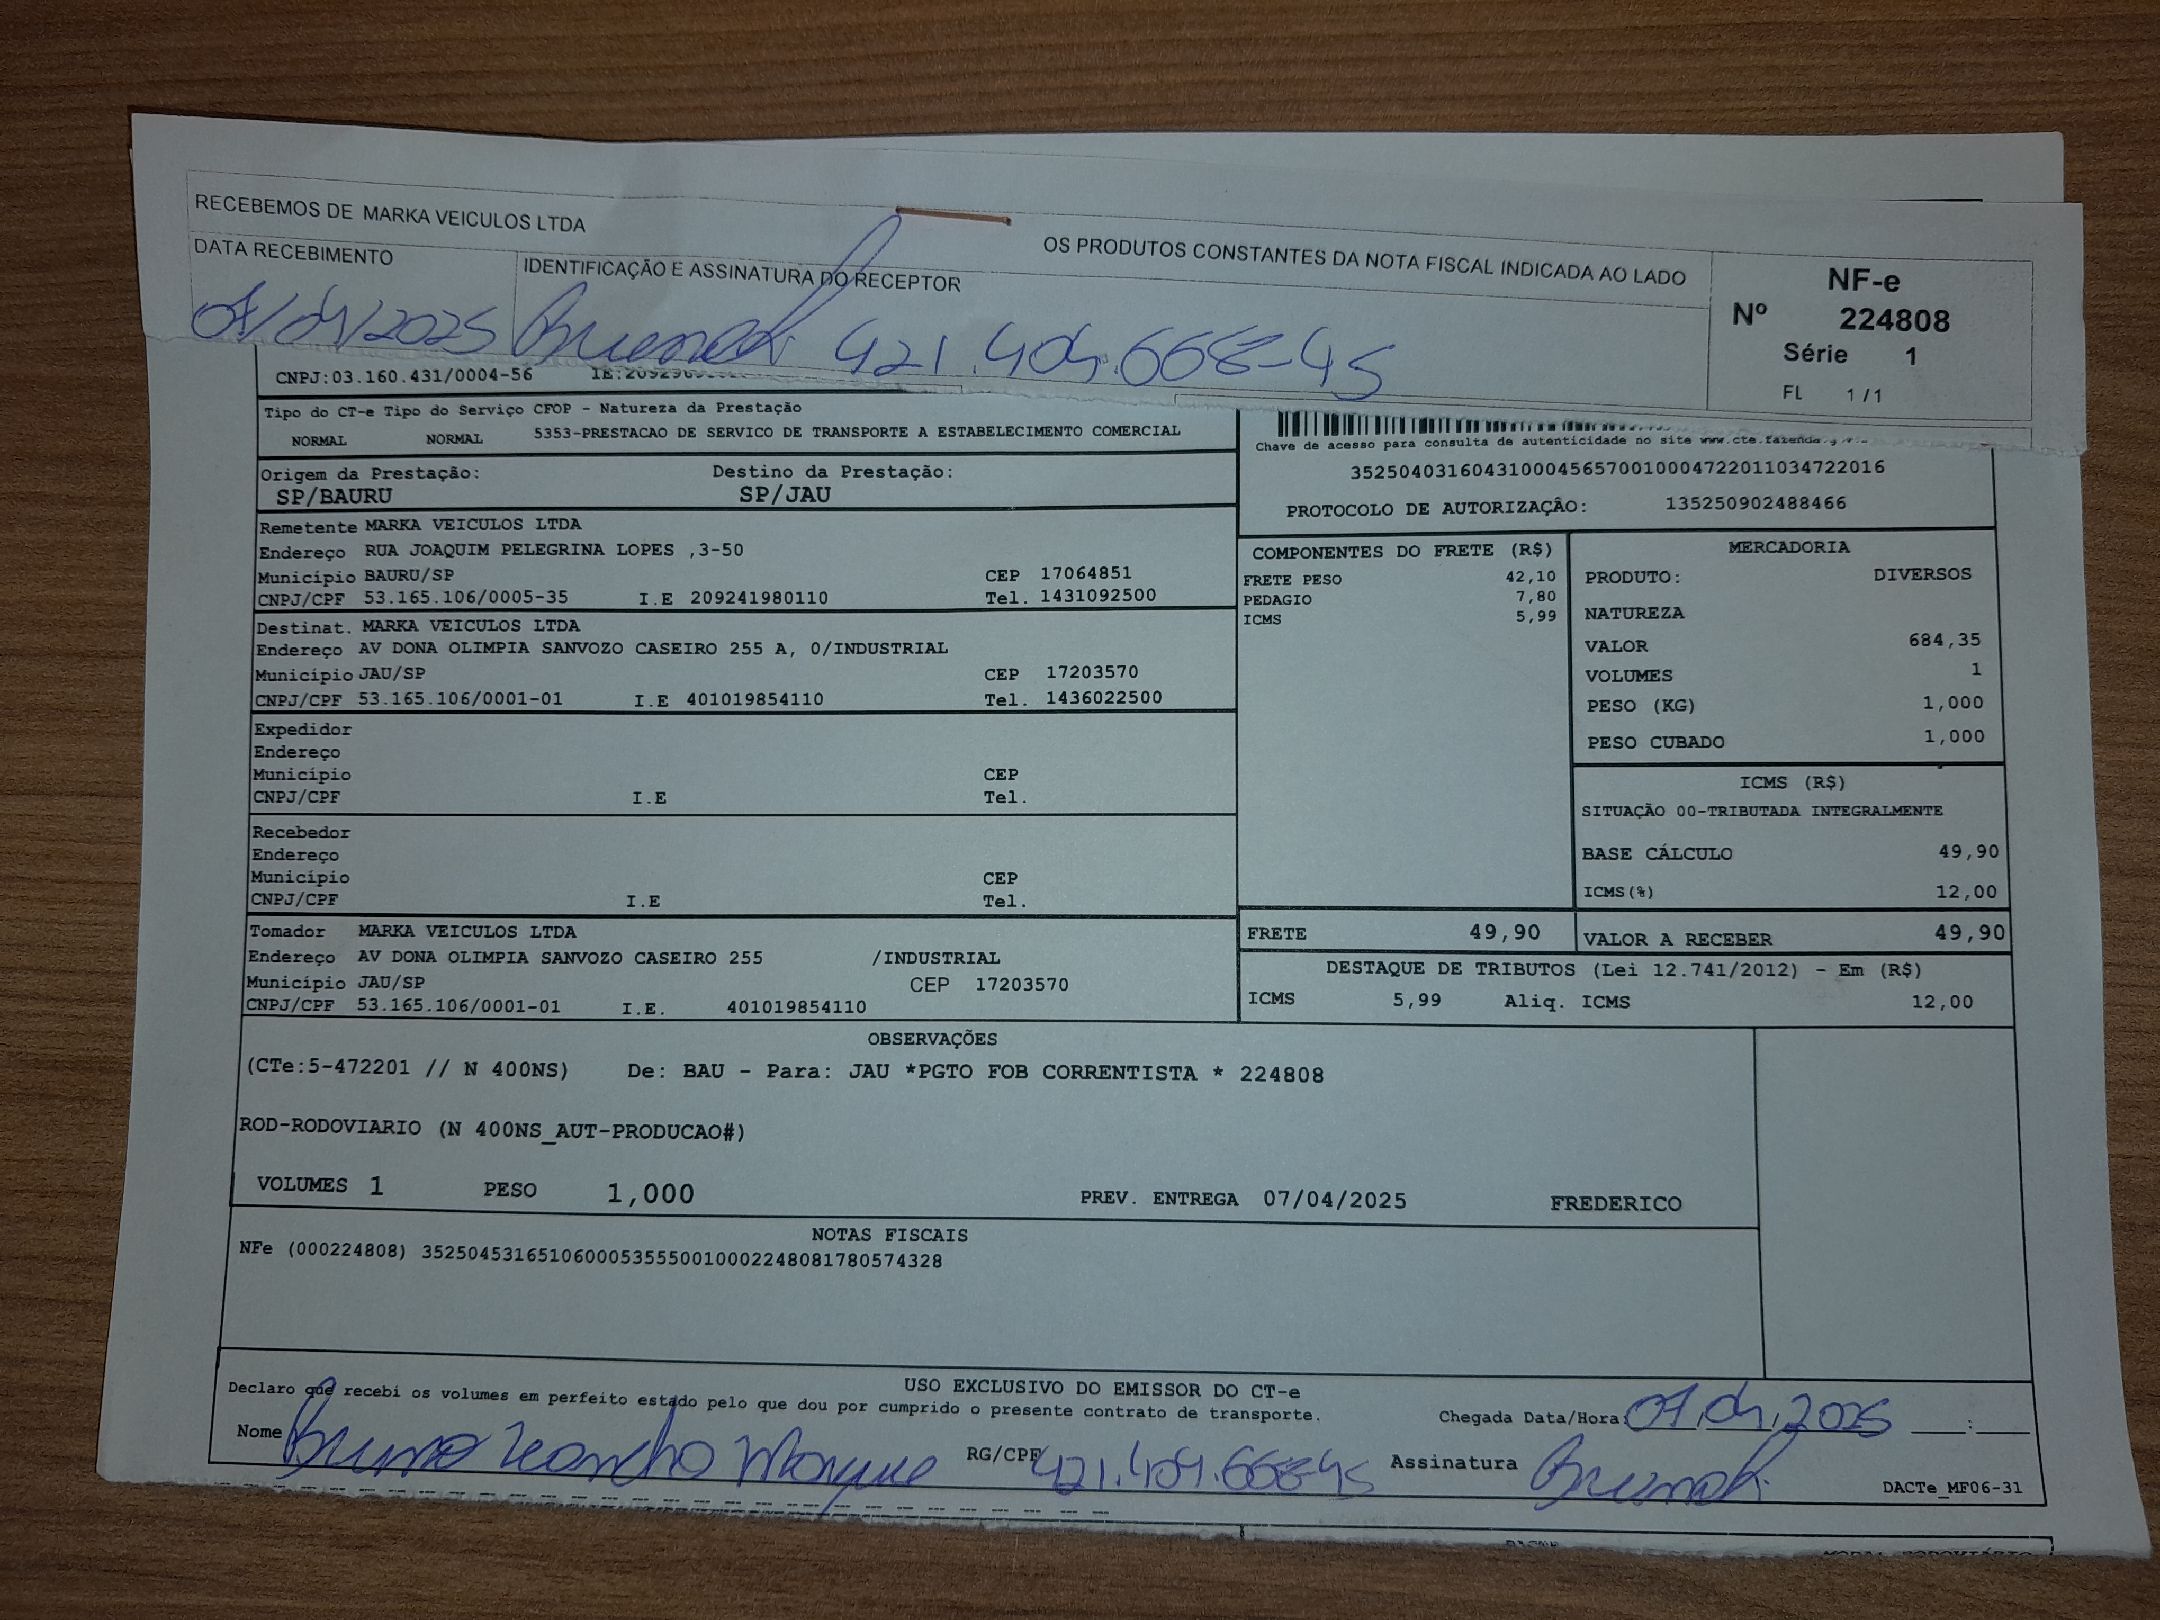 RECEBEMOS DE MARKA VEICULOS LTDA
OS PRODUTOS CONSTANTES DA NOTA FISCAL INDICADA AO LADO
DATA RECEBIMENTO
IDENTIFICAÇÃO E ASSINATURA DO RECEPTOR
NF-e
Nº 224808
Série 1
FL 1/1
/04/2025 421.404.668-45
CNPJ:03.160.431/0004-56
Tipo do CT-e Tipo do Serviço CFOP - Natureza da Prestação
NORMAL NORMAL 5353-PRESTACAO DE SERVICO DE TRANSPORTE A ESTABELECIMENTO COMERCIAL
Chave de acesso para consulta de autenticidade no site www.cte.fazenda.
35250403160431000456570010004722011034722016
PROTOCOLO DE AUTORIZAÇÂO: 135250902488466
Origem da Prestação: Destino da Prestação:
SP/BAURU SP/JAU
Remetente MARKA VEICULOS LTDA
Endereço RUA JOAQUIM PELEGRINA LOPES ,3-50
Município BAURU/SP CEP 17064851
CNPJ/CPF 53.165.106/0005-35 I.E 209241980110 Tel. 1431092500
Destinat. MARKA VEICULOS LTDA
Endereço AV DONA OLIMPIA SANVOZO CASEIRO 255 A, 0/INDUSTRIAL
Município JAU/SP CEP 17203570
CNPJ/CPF 53.165.106/0001-01 I.E 401019854110 Tel. 1436022500
Expedidor
Endereço
Município CEP
CNPJ/CPF I.E Tel.
Recebedor
Endereço
Município CEP
CNPJ/CPF I.E Tel.
Tomador MARKA VEICULOS LTDA
Endereço AV DONA OLIMPIA SANVOZO CASEIRO 255 /INDUSTRIAL
Município JAU/SP CEP 17203570
CNPJ/CPF 53.165.106/0001-01 I.E. 401019854110
COMPONENTES DO FRETE (R$)
FRETE PESO 42,10
PEDAGIO 7,80
ICMS 5,99
MERCADORIA
PRODUTO: DIVERSOS
NATUREZA
VALOR 684,35
VOLUMES 1
PESO (KG) 1,000
PESO CUBADO 1,000
ICMS (R$)
SITUAÇÃO 00-TRIBUTADA INTEGRALMENTE
BASE CÁLCULO 49,90
ICMS(%) 12,00
FRETE 49,90 VALOR A RECEBER 49,90
DESTAQUE DE TRIBUTOS (Lei 12.741/2012) - Em (R$)
ICMS 5,99 Aliq. ICMS 12,00
OBSERVAÇÕES
(CTe:5-472201 // N 400NS) De: BAU - Para: JAU *PGTO FOB CORRENTISTA * 224808
ROD-RODOVIARIO (N 400NS_AUT-PRODUCAO#)
VOLUMES 1 PESO 1,000 PREV. ENTREGA 07/04/2025 FREDERICO
NOTAS FISCAIS
NFe (000224808) 35250453165106000535550010002248081780574328
USO EXCLUSIVO DO EMISSOR DO CT-e
Declaro que recebi os volumes em perfeito estado pelo que dou por cumprido o presente contrato de transporte.
Chegada Data/Hora: 07,04,2025 :
Nome Bruno RG/CPF 421.404.668-45 Assinatura
DACTe_MF06-31